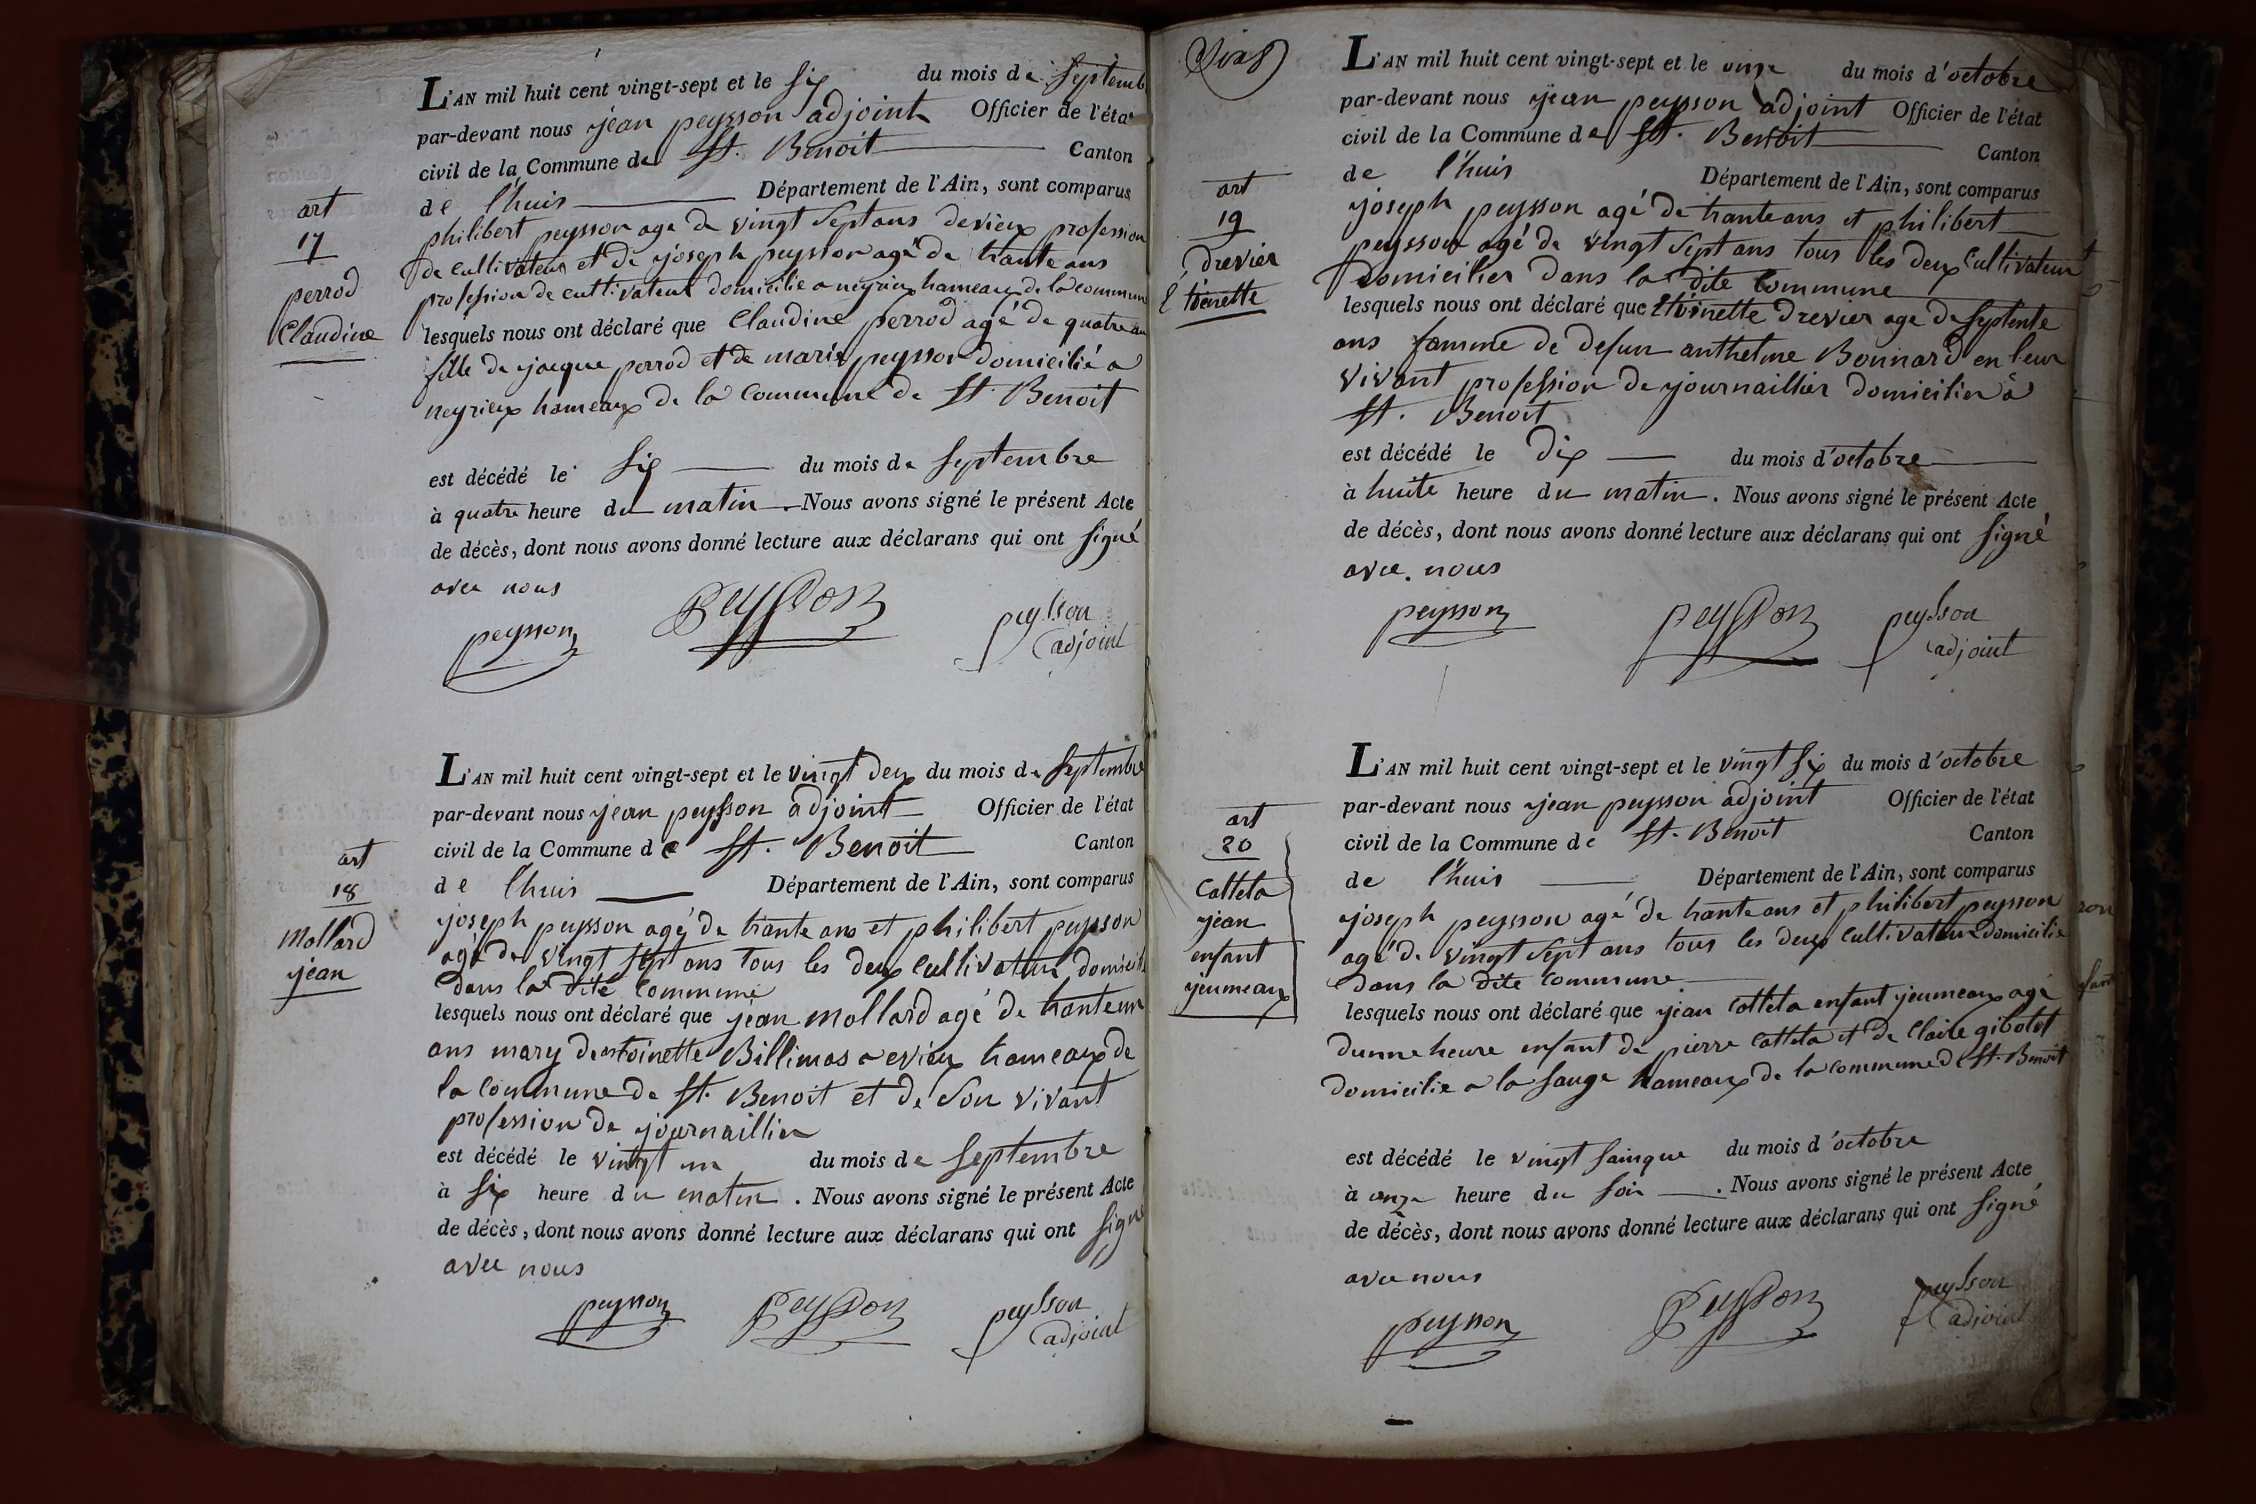 L'AN mil huit cent vingt-sept et le six du mois de Septemb
par-devant nous jean peysson adjoint Officier de l'état
civil de la Commune de St. Benoit Canton
de l'huis Département de l'Ain, sont comparus
philibert peysson agé de vingt Sept ans profession
de cultivateur et de joseph peysson agé de trante ans
profession de cultivateur domicilié a neyrieu hameau de la commune
lesquels nous ont déclaré que Claudine perrod agé de quatre an
fille de jacque perrod et de marie peysson domicilié a
neyrieux hameaux de la Commune de St. Benoit
est décédé le six du mois de Septembre
à quatre heure du matin. Nous avons signé le présent Acte
de décès, dont nous avons donné lecture aux déclarans qui ont Signé
avec nous
peysson Peysson peysson
adjoint
art
17
perrod
Claudine
L'AN mil huit cent vingt-sept et le vingt deux du mois de Septembre
par-devant nous jean peysson adjoint Officier de l'état
civil de la Commune de St. Benoit Canton
de l'huis Département de l'Ain, sont comparus
joseph peysson agé de trante ans et philibert peysson
agé de vingt Sept ans tous les deux Cultivateur domicilié
dans la dite Commune
lesquels nous ont déclaré que jean mollard agé de trante un
ans mary de antoinette Billimas a evieu hameaux de
la Commune de St. Benoit et de Son vivant
profession de journaillier
est décédé le vingt un du mois de Septembre
à Six heure du matin. Nous avons signé le présent Acte
de décès, dont nous avons donné lecture aux déclarans qui ont Signé
avec nous
peysson Peysson peysson
adjoint
art
18
Mollard
jean
L'AN mil huit cent vingt-sept et le onze du mois d'octobre
par-devant nous jean peysson adjoint Officier de l'état
civil de la Commune de St. Benoit Canton
de l'huis Département de l'Ain, sont comparus
joseph peysson agé de trante ans et philibert
peysson agé de vingt Sept ans tous les deux Cultivateur
domicilier dans la dite Commune
lesquels nous ont déclaré que Etoinette Drevier age de Septente
ans famme de defun anthelme Bonnard en leur
vivant profession de journaillier domicilier à
St. Benoit
est décédé le Dix du mois d'octobre
à huite heure du matin. Nous avons signé le présent Acte
de décès, dont nous avons donné lecture aux déclarans qui ont Signé
avec nous
peysson peysson peysson
adjoint
art
19
Drevier
Etoinette
L'AN mil huit cent vingt-sept et le vingt Six du mois d'octobre
par-devant nous jean peysson adjoint Officier de l'état
civil de la Commune de St. Benoit Canton
de l'huis Département de l'Ain, sont comparus
joseph peysson agé de trante ans et philibert peysson
agé de vingt Sept ans tous les deux Cultivateur domicilié
dans la dite Commune
lesquels nous ont déclaré que jean Catteta enfant jeumeaux agé
dunne heure enfant de pierre Catteta et de Claire gibotet
domicilié a la Sauge hameaux de la commune de St. Benoit
est décédé le vingt Sainque du mois d'octobre
à onze heure du Soir. Nous avons signé le présent Acte
de décès, dont nous avons donné lecture aux déclarans qui ont Signé
avec nous
peysson Peysson peysson
adjoint
art
20
Catteta
jean
enfant
jeumeaux